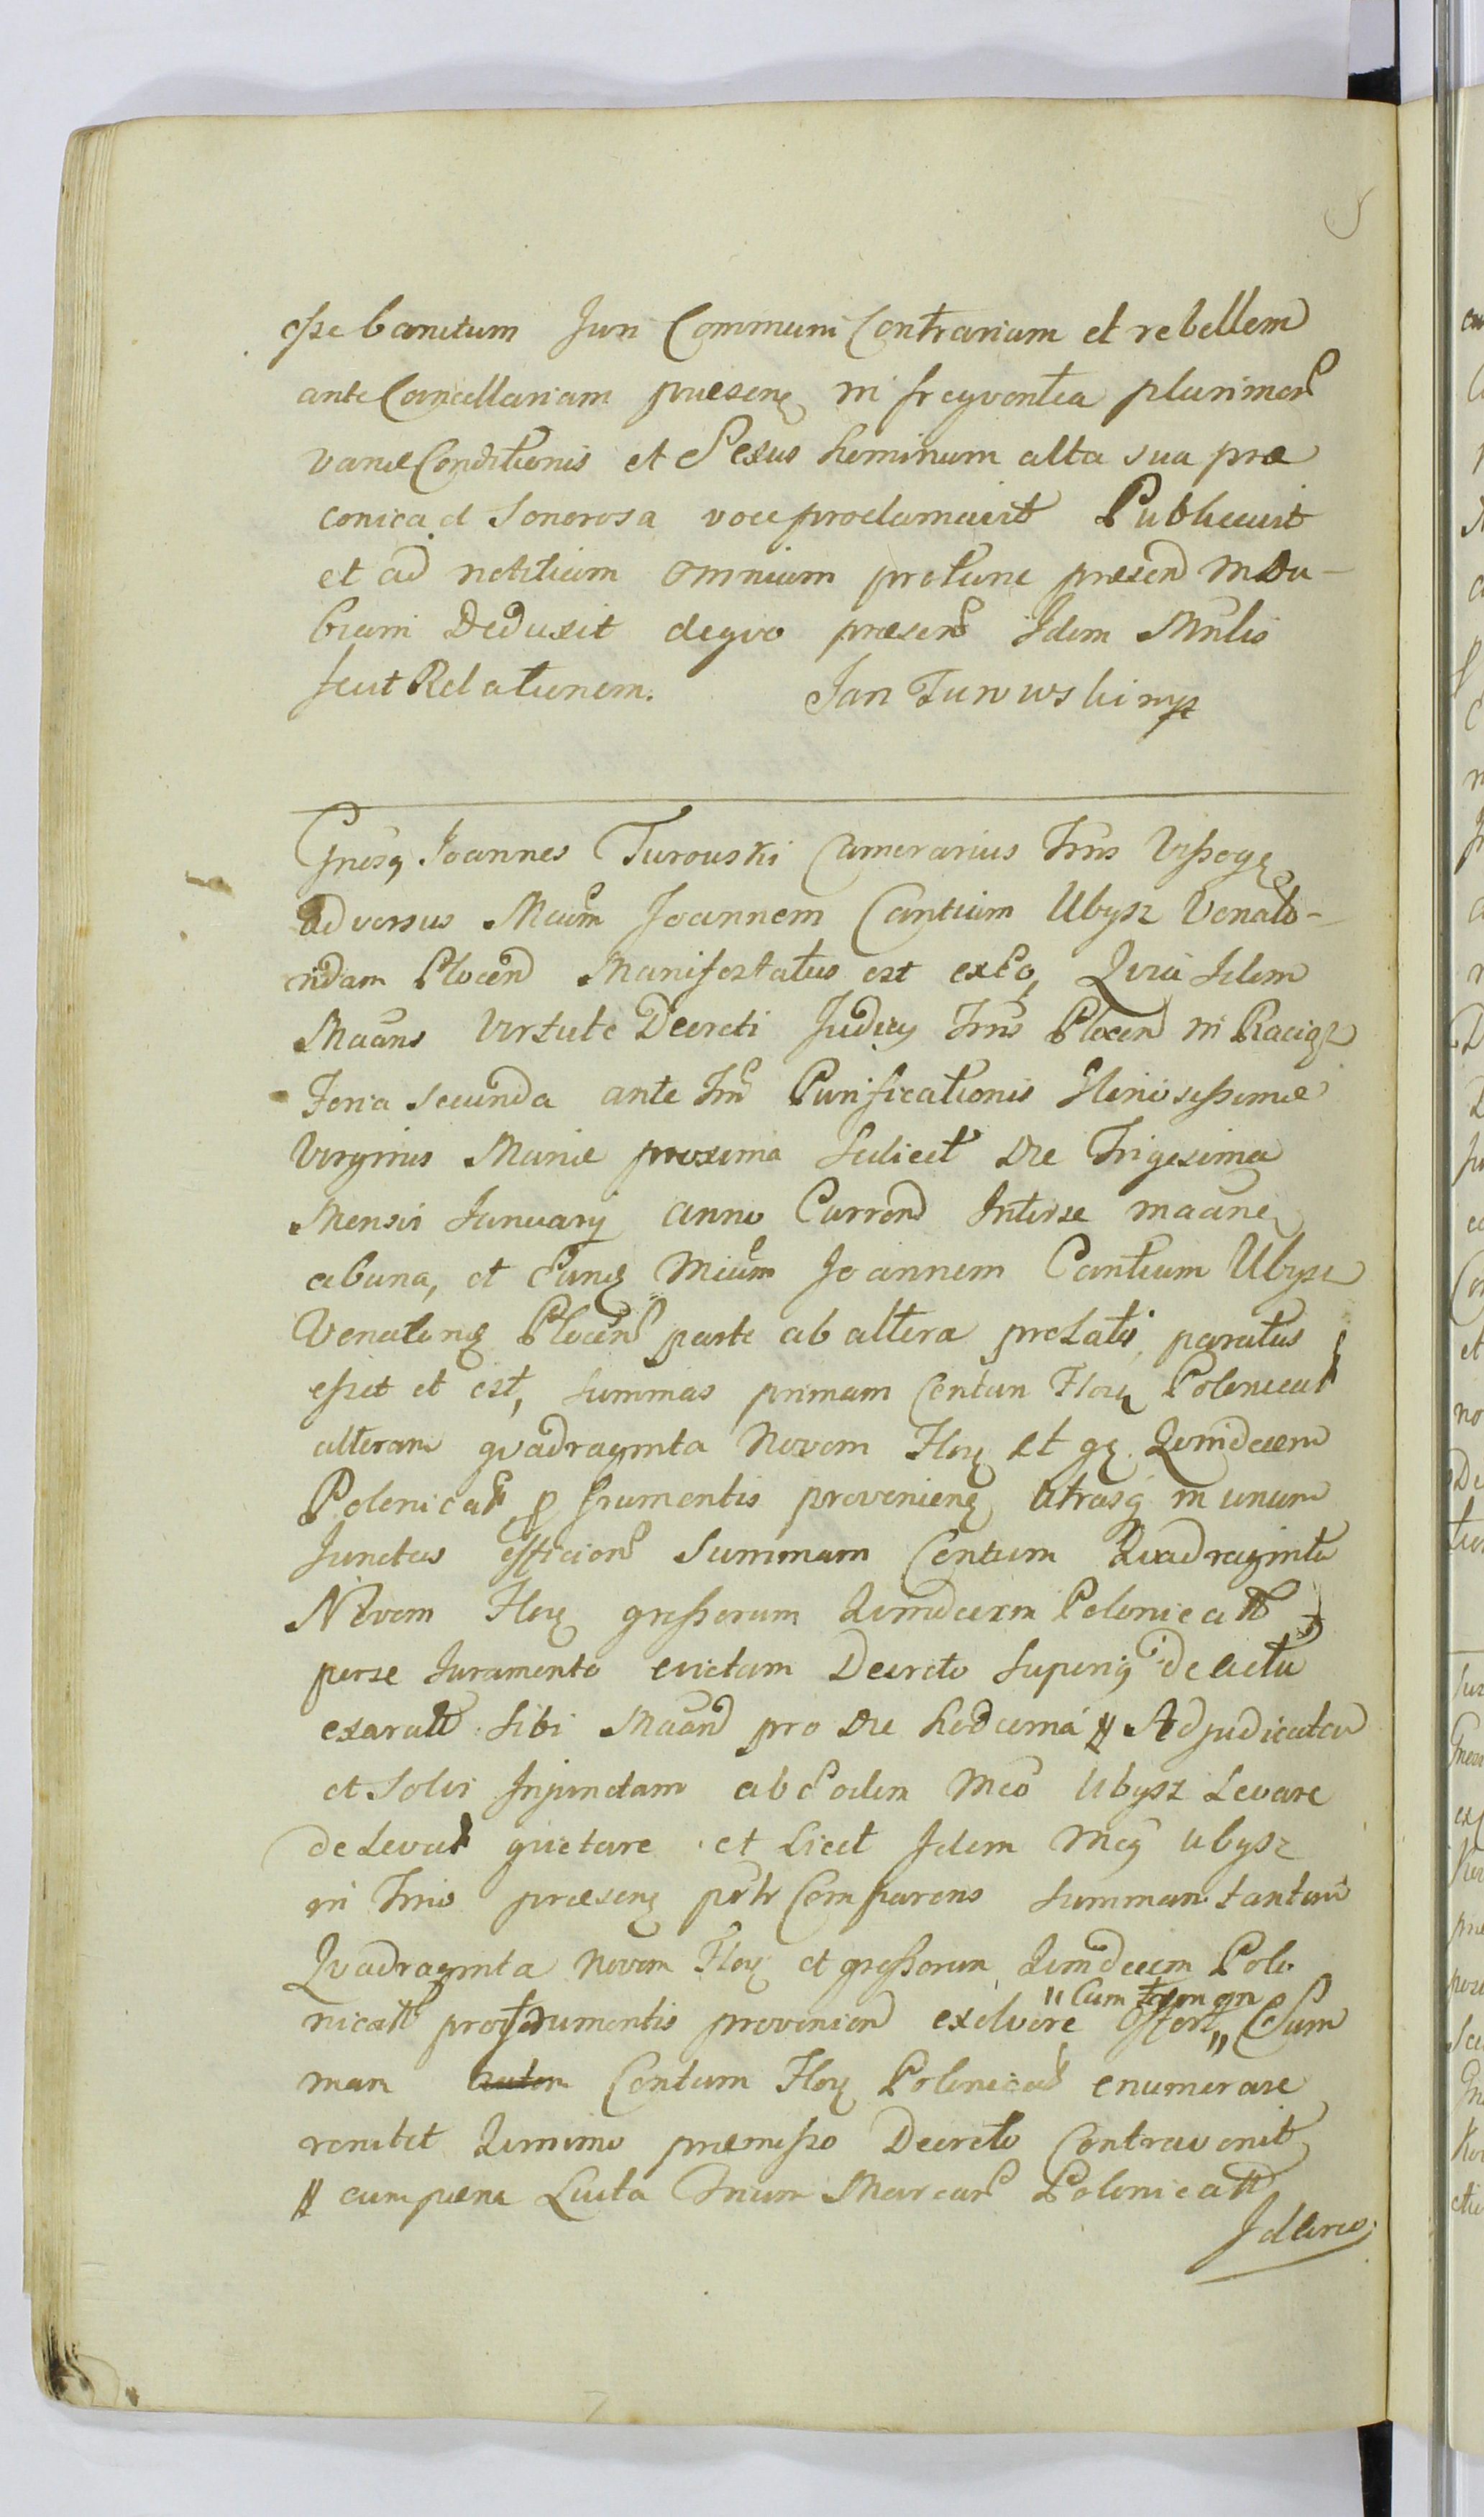 esse banitum Juri Communi Contrarium et rebellem
ante Cancellariam praesen in frequentia plurimor
variae Conditionis et Sexus hominum alta sua prae
conica et Sonorosa voce proclamavit Publicavit
et ad notitiam omnium protunc praesen in Du-
biam Deduxit deqvo praesen Idem Mnlis
fecit Relationem. Jan Turowski mp
Gnosq Joannes Turouski Camerarius Trrs Vissogr
adversus Mcum Joannem Cantium Ubysz Venato-
ridam Plocen Manifestatus est exEo, Qvia Idem
Maans Virtute Decreti Judicy Trris Plocen in Raciąż
Feria Secunda ante Fm Purificationis Gloriosissimae
Virginis Mariae proxima Scilicet Die Trigesima
Mensis January anno Curren Interse maane
abuna, et Eung Mcum Joannem Cantium Ubysz
Venatong Plocen parte ab altera prolatj, paratus
esset et est, Summas primam Centum Flor Polonical
alteram qvadraginta Novem Flor et gr. Qvindecem
Polonical p frumentis provenieng utrasq in unum
Junctas efficien Summam Centum Qvadraginta
Novem Flor grossorum Qvindecem Polonicall
perse Juramento evictam Decreto Superig de actu
exarall Sibi Maand pro Die hodierna # Adjudicatam
et Solvi Injunctam ab Eodem Mco Ubysz Levare
deLeval qvietare et Licet Idem Mcq Ubysz
in Trrio praeseng prtr Comparens Summam tantum
Qvadraginta Novem Flor et grossorum Qvindecem Polo
nicall pro frumentis provenien exolvere offert, " Sum
" Cum
mam autem Centum Flor Polonical enumerare
renitet Qvinimo praemisso Decreto Contravenit
# cum paena Lucta Trium Marcar Polonicall
Idcirco